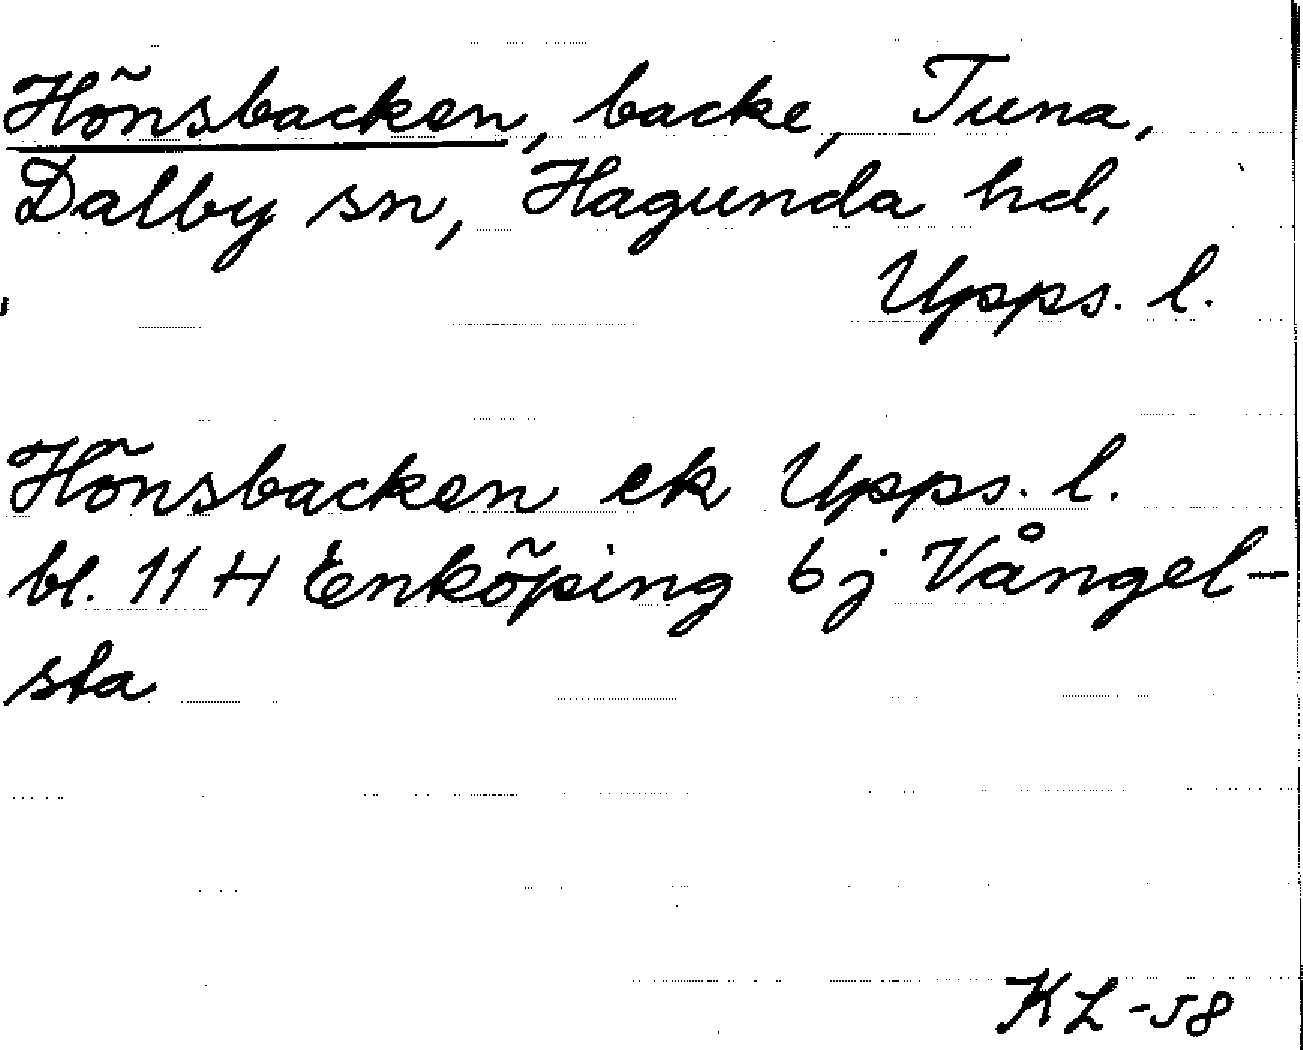 Hönsbacken, backe, Tuna,
Dalby sn, Hagunda hd,
Upps. l.
Hönsbacken ek Upps. l.
bl. 11 H Enköping 6 j Vångel-
sta
KL -58